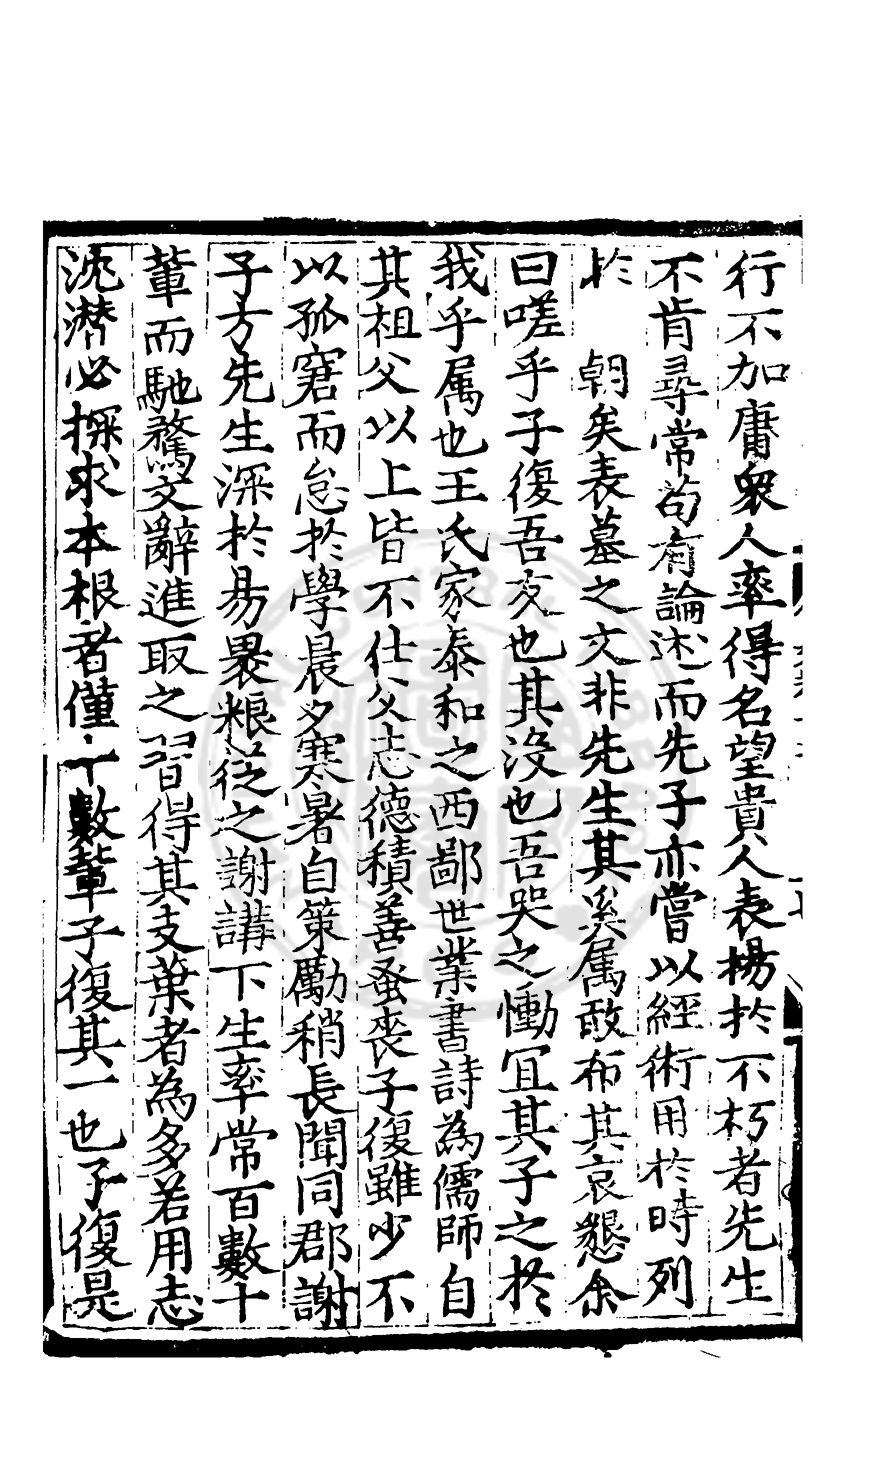 行不加庸衆人率得名望貴人表楊於不朽者先生
不肯尋常苟有論述而先子亦嘗以經術用於時列
於　朝矣表墓之文非先生其奚属敢布其哀懇余
曰嗟乎子復吾友也其没也吾哭之慟冝其子之於
我乎属也王氏家泰和之西鄙世業書詩為儒師自
其祖父以上皆不仕父志德積善蚤喪子復雖少不
以孤窘而怠於學晨夕寒暑自策勵稍長聞同郡謝
子方先生深於易褁粮從之謝講下生率常百數十
輩而馳騖文辭進取之習得其支葉者為多若用志
沈濳必探求本根者僅十數軰子復其一也子復是